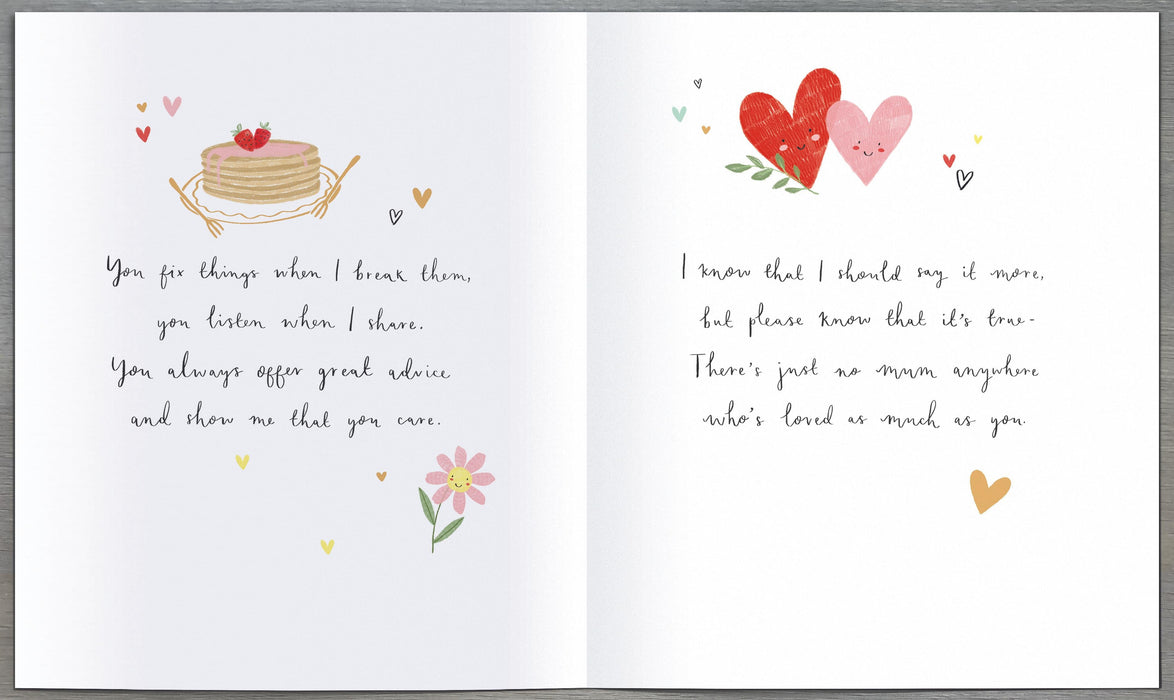 You fix things when I break them,
you listen when I share.
You always offer great advice
and show me that you care.
I know that I should say it more,
but please know that it's true-
There's just no mum anywhere
who's loved as much as you.